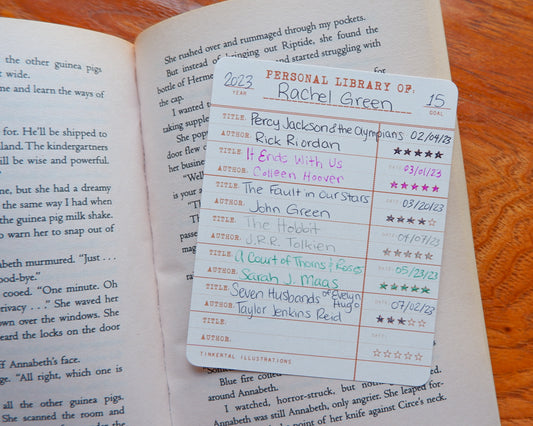 the other guinea pigs
wide.
me and learn the ways of
for. He'll be shipped to
land. The kindergartners
will be wise and powerful.
ne, but she had a dreamy
the same way I had when
the guinea pig milk shake.
warn her to snap out of
abeth murmured. "Just . . .
good-bye."
cooed. "One minute. Oh
privacy . . ." She waved her
own over the windows. She
heard the locks on the door
ff Annabeth's face.
ge. "All right, which one is
all the other guinea pigs.
She scanned the room and
She rushed over and rummaged through my pockets.
But instead of bringing out Riptide, she found the
bottle of Herme
and started struggling with
the cap.
I wanted
taking supple
She pop
door flew o
her business
"Well
is you
"Th
"We
passe
mag
2023
YEAR
PERSONAL LIBRARY OF:
Rachel Green
15
GOAL
TITLE: Percy Jackson & the Olympians 02/04/23
AUTHOR: Rick Riordan
TITLE: It Ends With Us DATE: 03/01/23
AUTHOR: Colleen Hoover
TITLE: The Fault in our Stars DATE: 03/20/23
AUTHOR: John Green
TITLE: The Hobbit DATE: 04/07/23
AUTHOR: J.R.R. Tolkien
TITLE: A Court of Thorns & Roses DATE: 05/23/23
AUTHOR: Sarah J. Maas
TITLE: Seven Husbands of Evelyn Hugo DATE: 07/02/23
AUTHOR: Taylor Jenkins Reid
TITLE: DATE:
AUTHOR:
TINKERTAL ILLUSTRATIONS
Blue fire coiled
around Annabeth.
I watched, horror-struck, but noth
Annabeth was still Annabeth, only angrier. She leaped for-
point of her knife against Circe's neck.